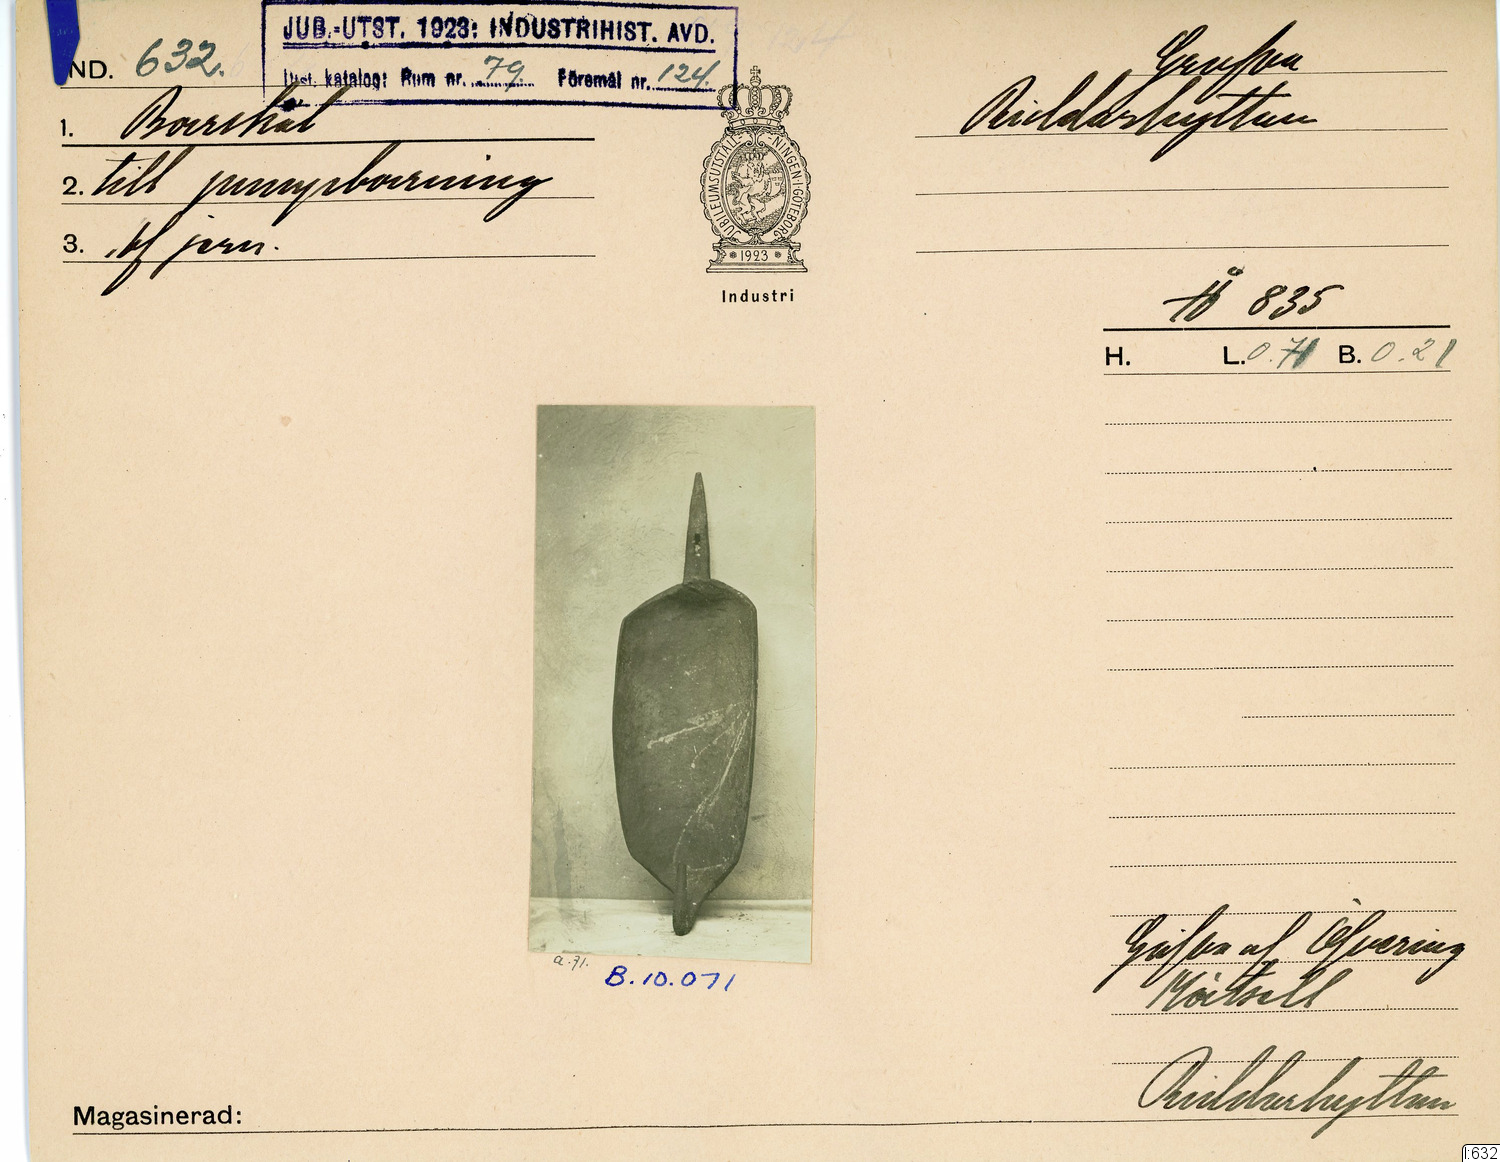 JUB.-UTST. 1923: INDUSTRIHIST. AVD.
Utst. katalog: Rum nr. 79 Föremål nr. 124.
ND. 632.
1. Borrskål
2. till pumpborrning
3. af jern.
JUBILEUMSUTSTÄLLNINGEN I GÖTEBORG
1923
Industri
Grufva
Riddarhyttan
835
H. L. 0.71 B. 0.21
a.71.
B.10.071
Gåfva af
Riddarhyttan
Magasinerad:
I:632